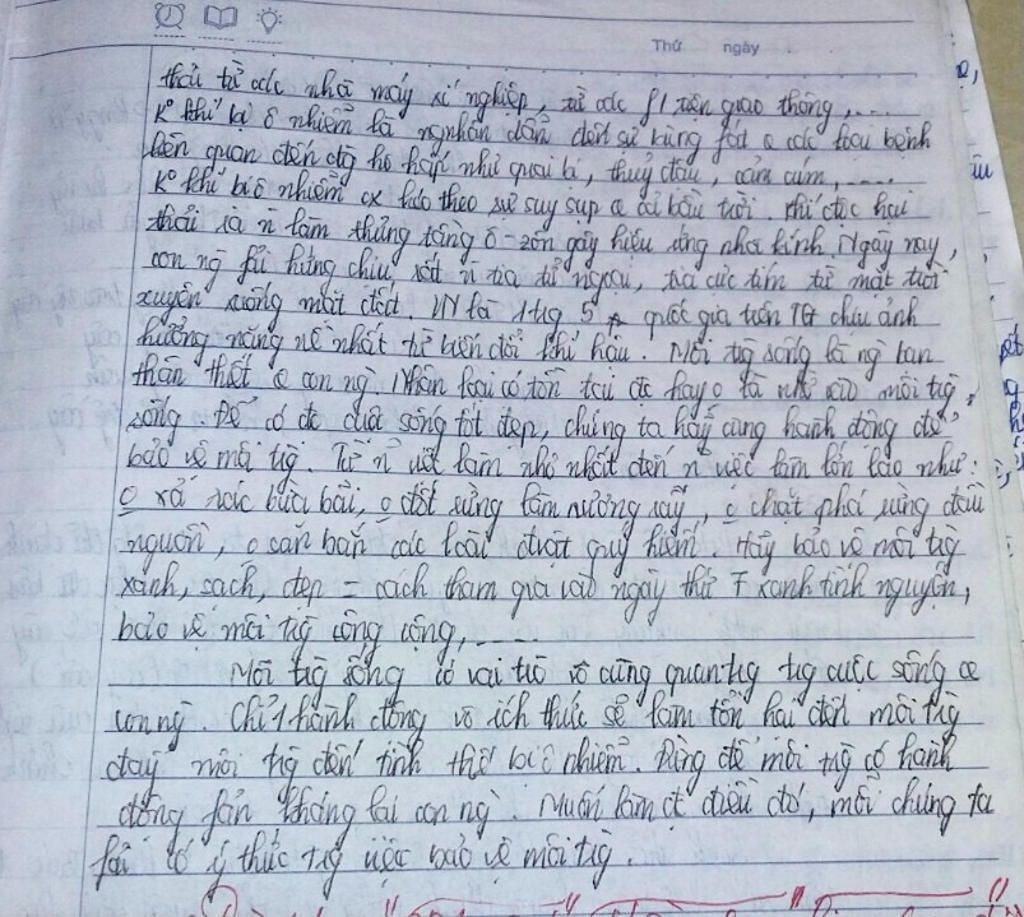 Thứ ngày
thải từ các nhà máy xí nghiệp, từ các f/tiện giao thông,....
K° khí bị ô nhiễm là ngnhân dẫn đến sự bùng fát @ các loại bệnh
liên quan đến đg hô hấp như quai bị, thuỷ đậu, cảm cúm,....
K° khí bị ô nhiễm cx kéo theo sự suy sụp @ cả bầu trời. Khí độc hại
thải ra n làm thủng tầng ô-zôn gây hiệu ứng nhà kính. Ngày nay,
con ng fải hứng chịu rất n tia tử ngoại, tia cực tím từ mặt trời
xuyên xuống mặt đất. VN là 1 tg 5 quốc gia trên TG chịu ảnh
hưởng nặng nề nhất từ biến đổi khí hậu. Môi tg sống là ng bạn
thân thiết @ con ng. Nhân loại có tồn tại đc hay o là nhờ vào môi tg
sống. Để có đc cuộc sống tốt đẹp, chúng ta hãy cùng hành động để
bảo vệ môi tg. Từ n việc làm nhỏ nhất đến n việc làm lớn lao như:
o xả rác bừa bãi, o đốt rừng làm nương rẫy, o chặt phá rừng đầu
nguồn, o săn bắn các loài đvật quý hiếm. Hãy bảo vệ môi tg
xanh, sạch, đẹp = cách tham gia vào ngày thứ 7 xanh tình nguyện,
bảo vệ môi tg công cộng,...
Môi tg sống có vai trò vô cùng quan tg tg cuộc sống @
con ng. Chỉ 1 hành động vô ích thức sẽ làm tổn hại đến môi tg
đẩy môi tg đến tình thế bị ô nhiễm. Đừng để môi tg có hành
động fản kháng lại con ng. Muốn làm đc điều đó, mỗi chúng ta
fải có ý thức tg việc bảo vệ môi tg.